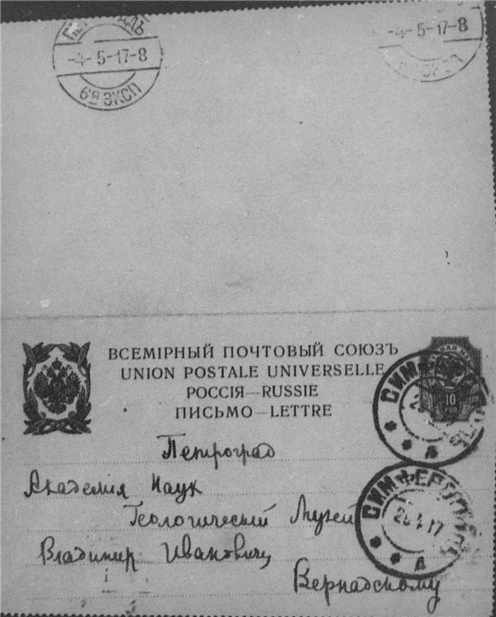 -4-5-17-8
6Я ЭКСП
-4-5-17-8
ВСЕМІРНЫЙ ПОЧТОВЫЙ СОЮЗЪ
UNION POSTALE UNIVERSELLE
РОССІЯ—RUSSIE
ПИСЬМО—LETTRE
10
СИМФЕРОПОЛЬ
Л
Петроград
Академия Наук
Геологический Музей
Владимир Иванович
Вернадскому
СИМФЕРОПОЛЬ
Л